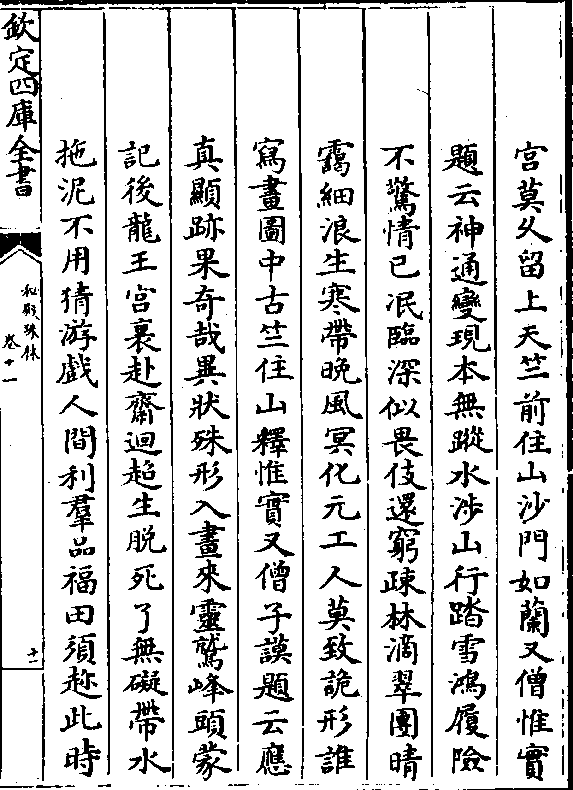 宮莫久留上天竺前住山沙門如蘭又僧惟實
題云神通變現本無蹤水涉山行踏雪鴻履險
不驚情已泯臨深似畏伎還窮疎林滴翠團晴
靄細浪生寒帶晚風冥化元工人莫致詭形誰
寫畫圖中古竺住山釋惟實又僧子謨題云應
真顯跡果奇哉異狀殊形入畫來靈鷲峰頭蒙
記後龍王宮裏赴齋迴超生脫死了無礙帶水
拖泥不用猜游戲人間利羣品福田須趂此時
欽定四庫全書
秘殿珠林
卷十一
十一